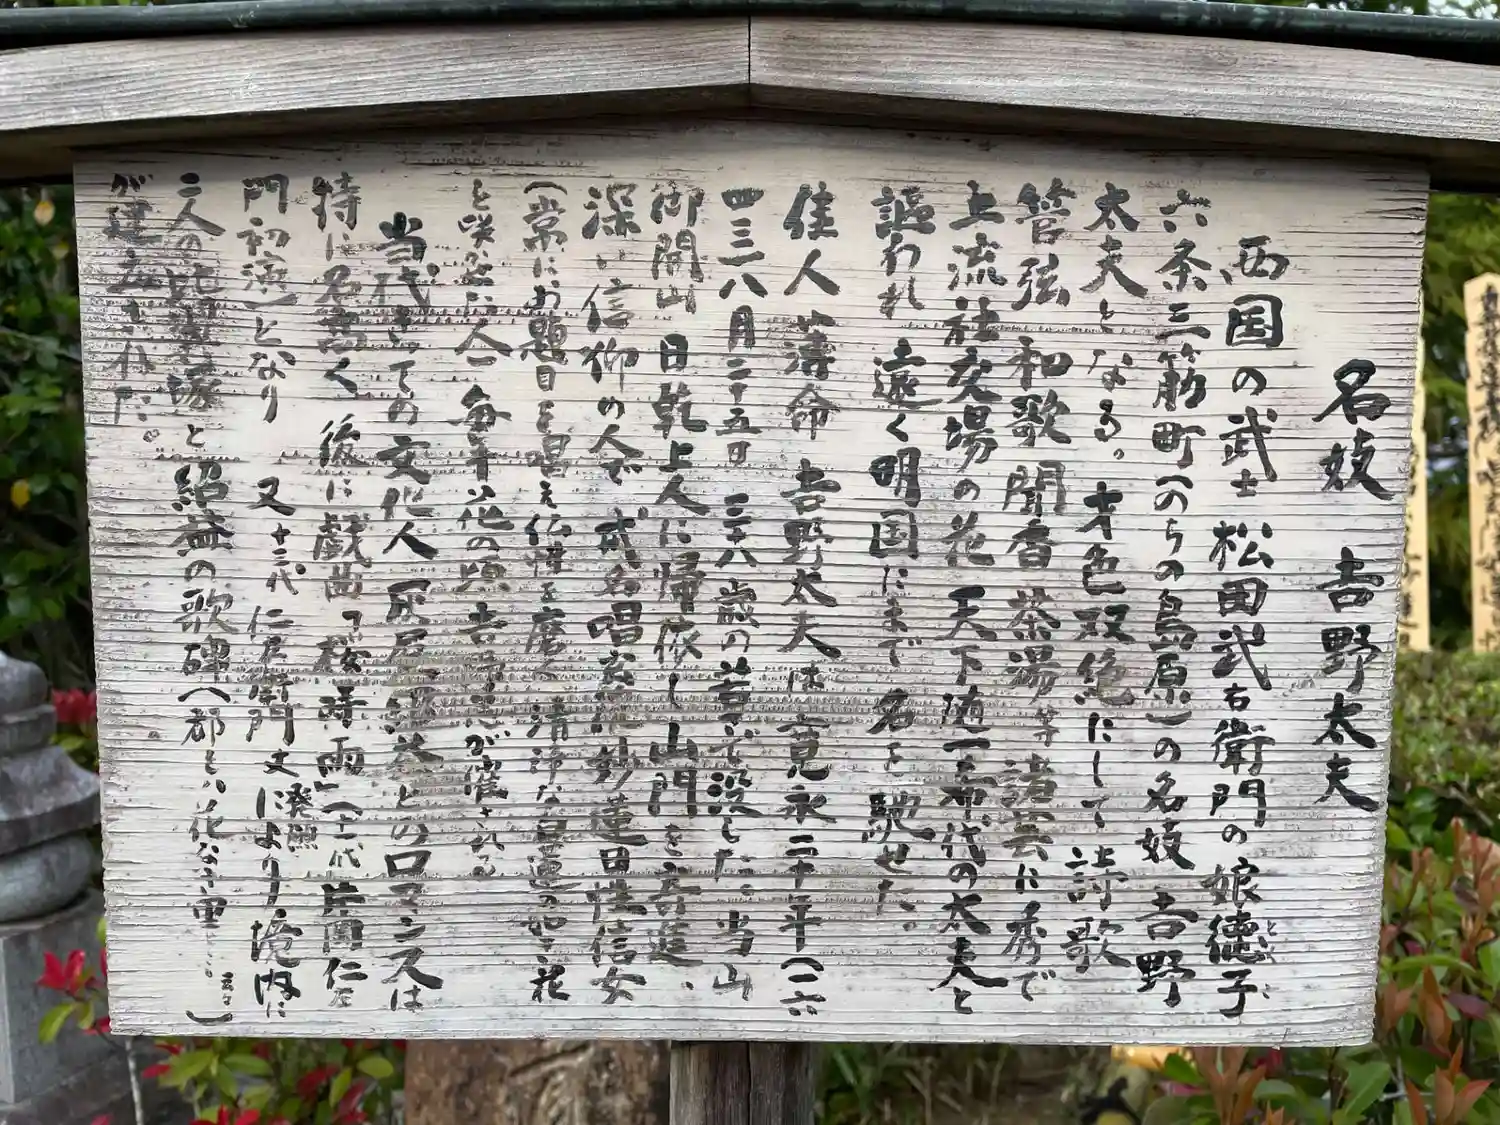 名妓 吉野太夫
西国の武士 松田武右衛門の娘徳子
とくこ
六条三筋町(のちの島原)の名妓 吉野
太夫となる。才色双絶にして 詩歌
管弦 和歌 聞香 茶湯等 諸芸に秀で
上流社交場の花 天下随一 希代の太夫と
謳われ 遠く明国にまで 名を馳せた。
佳人薄命 吉野太夫は 寛永二十年(一六
四三)八月二十五日 三十八歳の若さで没した。当山
御開山 日乾上人に帰依し 山門を寄進、
深い信仰の人で 式名唱玄院妙蓮日性信女
(常にお題目を唱え 心性を磨く 清浄な白蓮の如き花
と咲きた人) 毎年 花の頃 吉野 が催される
当代きっての文化人 灰屋紹益とのロマンスは
特に名高く 後に 戯曲「桜時雨」(十一代 片岡仁左
門初演)となり 又 十三代 仁左衛門丈 発願によりり 境内に
二人の比翼塚と 紹益の歌碑(都をば 花なき里 云々)
が建立された。